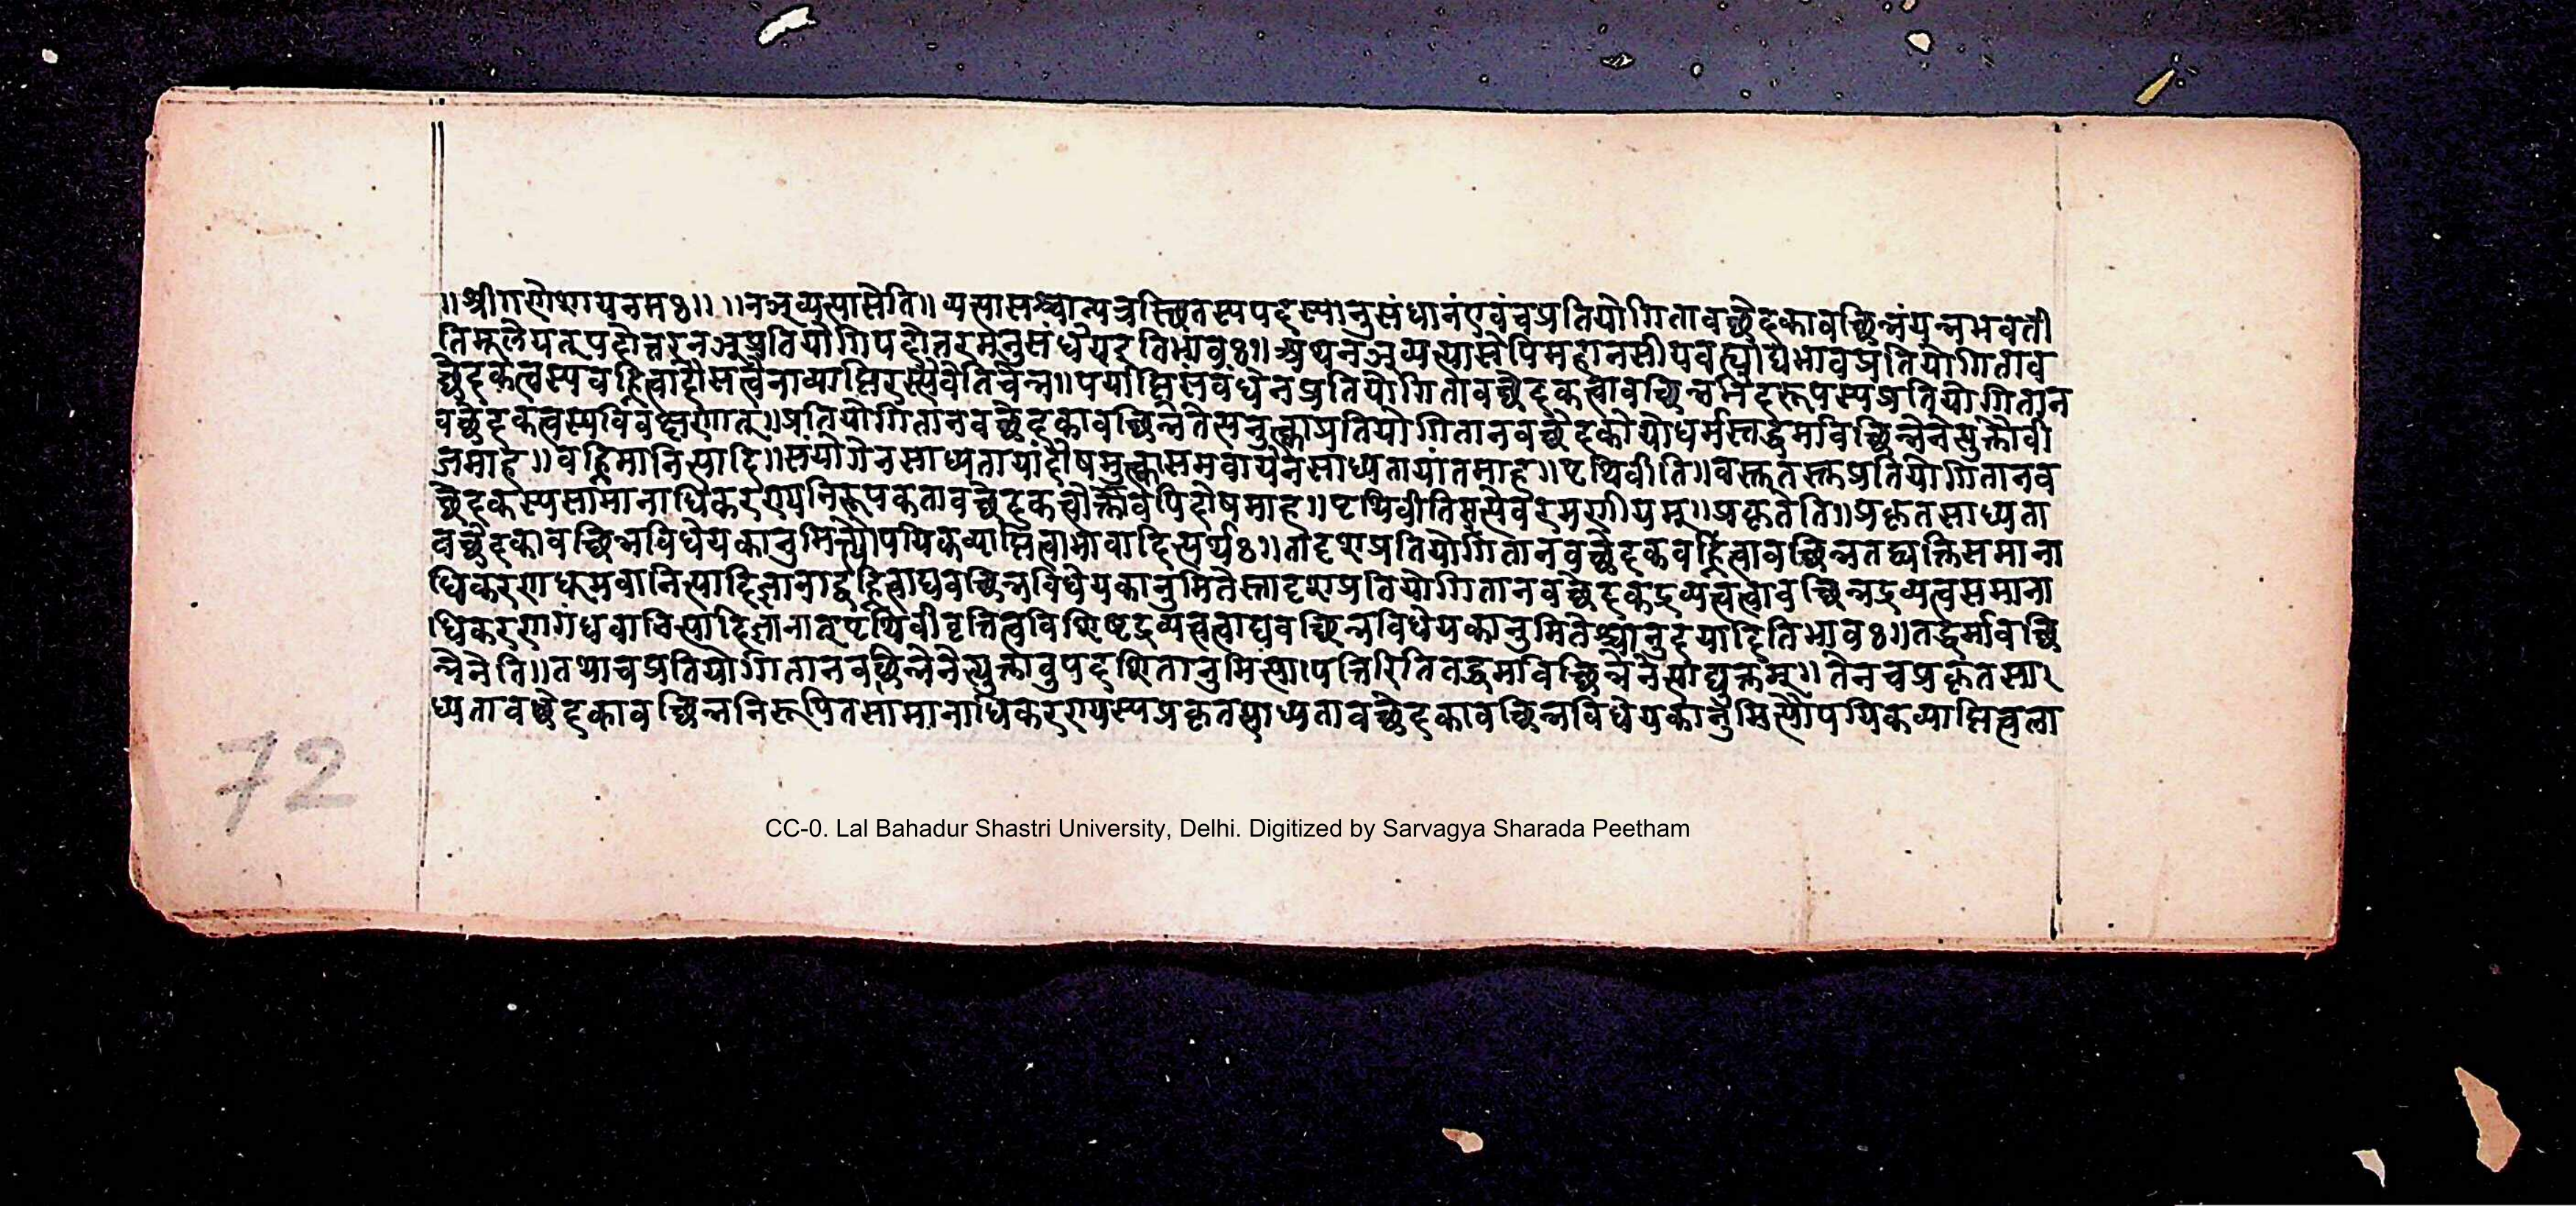 ॥श्रीगणेशायनमः॥ ॥नञ्व्यत्यासेति॥ यत्सामश्चात्पत्रस्थितस्यपदस्यानुसंधानंएवंचप्रतियोगितावच्छेदकावच्छिन्नंयन्नभवती
तिमूलेयत्पदोत्तरनञ्प्रतियोगिपदोत्तरमनुसंधेयइतिभावः॥अथनञ्व्यत्यासेपिमहानसीयवह्न्याद्यभावप्रतियोगिताव
च्छेदकत्वस्यवह्नित्वादौसत्वेनाव्याप्तिरस्त्येवेतिचेन्न॥पर्याप्तिसंबंधेनप्रतियोगितावच्छेदकत्वावच्छिन्नभिदरूपस्यप्रतियोगितान
वच्छेदकत्वस्यविवक्षणात्॥प्रतियोगितानवच्छेदकावच्छिन्नेतेत्यनुत्काप्रतियोगितानवच्छेदकोयोधर्मस्तद्धर्मावच्छिन्नेनेत्युक्तौवी
जमाह॥वह्निमानित्यादि॥संयोगेनसाध्यतायांदोषमुत्कासमवायेनसाध्यतायांतमाह॥पृथिवीति॥वस्तुतस्तुप्रतियोगितानव
च्छेदकस्यसामानाधिकरण्यनिरूपकतावच्छेदकत्वोक्तावपिदोषमाह॥पृथिवीतिसत्येवरमणीयम्॥प्रकृतेति॥प्रकृतसाध्यता
वच्छेदकावच्छिन्नविधेयकानुमित्यौपयिकव्याप्तित्वाभावादित्यर्थः॥तादृशप्रतियोगितानवच्छेदकवह्नित्वावच्छिन्नतद्व्यक्तिसमाना
धिकरणधूमवानित्यादिज्ञानाद्वह्नित्वाद्यवच्छिन्नविधेयकानुमितेस्तादृशप्रतियोगितानवच्छेदकद्रव्यत्वत्वावच्छिन्नद्रव्यत्वसमाना
धिकरणगंधवानित्यादिज्ञानात्पृथिवीवृत्तित्वविशिष्टद्रव्यत्वत्वाद्यवच्छिन्नविधेयकानुमितेश्चानुदयादितिभावः॥तद्धर्मावच्छि
न्नेनेति॥तथाचप्रतियोगितानवच्छिन्नेनेत्युक्तावुपदर्शितानुमित्यापत्तिरितितद्धर्मावच्छिन्नेनेत्याद्युक्तम्॥तेनचप्रकृतसा
ध्यतावच्छेदकावच्छिन्ननिरूपितसामानाधिकरण्यस्यप्रकृतसाध्यतावच्छेदकावच्छिन्नविधेयकानुमित्यौपयिकव्याप्तित्वला
72
CC-0. Lal Bahadur Shastri University, Delhi. Digitized by Sarvagya Sharada Peetham